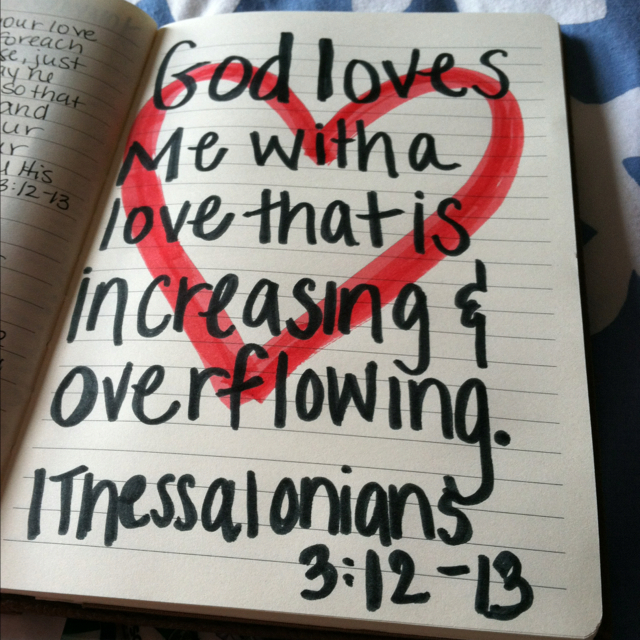 our love
foreach
se, just
ay he
so that
and
ur
ur
His
3:12-13
God loves
Me with a
love that is
increasing &
overflowing.
1 Thessalonians
3:12-13